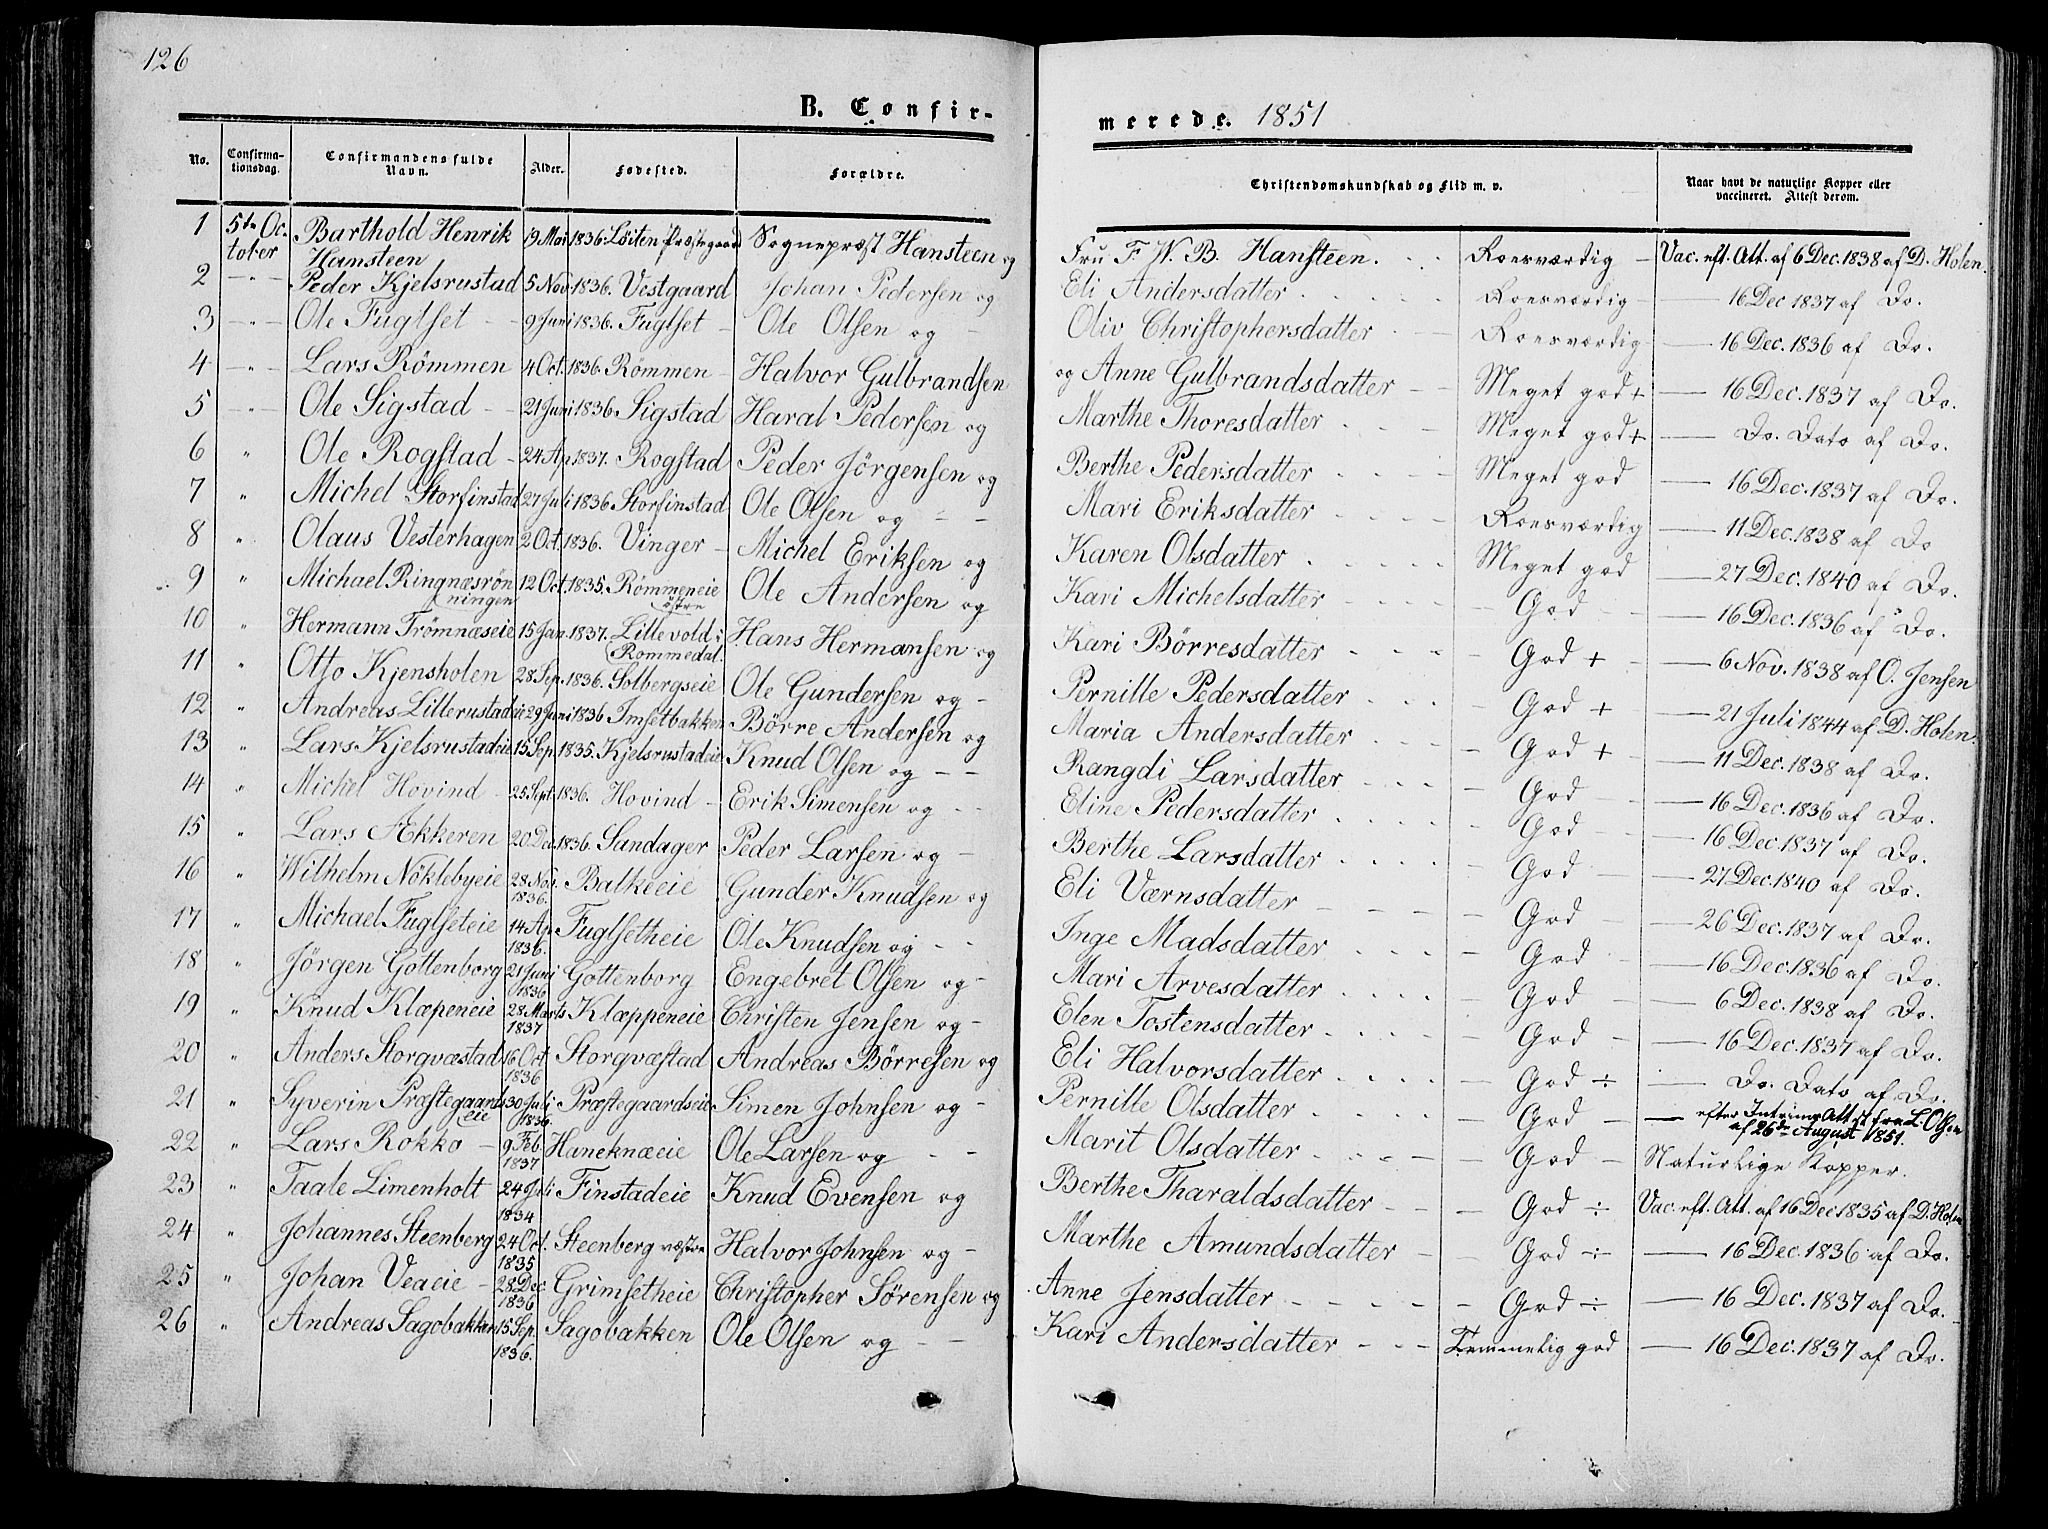 126
B. Confir-
merede. 1851
No. Confirma-tionsdag. Confirmandens fulde Navn. Alder. Fødested. Forældre. Christendomskundskab og Flid m. v. Naar havt de naturlige Kopper eller vaccineret. Attest derom.
1 5te Oc-tober Barthold Henrik Hansteen 19 Mai 1836. Löiten Præstegaard Sognepræst Hansteen og Fru F. W. B. Hansteen. Roesværdig Vac. eft. Att. af 6 Dec. 1838 af D. Holen.
2 - " - Peder Kjelsrustad 5 Nov. 1836. Vestgaard Johan Pedersen og Eli Andersdatter Roesværdig — 16 Dec 1837 af Do.
3 - " - Ole Fuglset 9 Juni 1836. Fuglset Ole Olsen og Oliv Christophersdatter Roesværdig — 16 Dec. 1836 af Do.
4 - " - Lars Römmen 4 Oct. 1836. Römmen Halvor Gulbrandsen og Anne Gulbrandsdatter Meget god + — 16 Dec. 1837 af Do.
5 - " - Ole Sigstad 21 Juni 1836. Sigstad Haral Pedersen og Marthe Thoresdatter Meget god + — Do. Dato af Do.
6 " Ole Rogstad 24 Ap 1837. Rogstad Peder Jörgensen og Berthe Pedersdatter Meget god — 16 Dec. 1837 af Do.
7 " Michel Storfinstad 27 Juli 1836 Storfinstad Ole Olsen og Mari Eriksdatter Roesværdig — 11 Dec. 1838 af Do
8 " Olaus Vesterhagen 2 Oct. 1836. Vinger Michel Eriksen og Karen Olsdatter Meget god — 27 Dec. 1840 af Do.
9 " Michael Ringnæsrönningen 12 Oct. 1835. Römmeneie östre Ole Andersen og Kari Michelsdatter God — 16 Dec. 1836 af Do.
10 " Hermann Trömnæseie 15 Jan. 1837. Lillevold i Rommedal. Hans Hermansen og Kari Börresdatter God + — 6 Nov. 1838 af O. Jensen
11 " Otto Kjensholen 28 Sep. 1836. Solbergseie Ole Gundersen og Pernille Pedersdatter God + — 21 Juli 1844 af D. Holen.
12 " Andreas Lillerustadeie 29 Juni 1836 Imsetbakken Börre Andersen og Maria Andersdatter God + — 11 Dec. 1838 af Do.
13 " Lars Kjelsrustadeie 15 Sep. 1835. Kjelsrustadeie Knud Olsen og Rangdi Larsdatter God — 16 Dec. 1836 af Do.
14 " Michel Hovind 25 Sept 1836. Hovind Erik Simensen og Eline Pedersdatter God — 16 Dec. 1837 af Do.
15 " Lars Ækkeren 20 Dec. 1836. Sandager Peder Larsen og Berthe Larsdatter God — 27 Dec. 1840 af Do.
16 " Wilhelm Nöklebyeie 28 Nov. 1836. Balkeeie Gunder Knudsen og Eli Værnsdatter God — 26 Dec. 1837 af Do.
17 " Michael Fuglseteie 14 Ap. 1836. Fuglsetheie Ole Knudsen og Inge Madsdatter God — 16 Dec. 1836 af Do.
18 " Jörgen Gottenborg 21 Juni 1836 Gottenborg Engebret Olsen og Mari Arvesdatter God — 6 Dec. 1838 af Do.
19 " Knud Klæpeneie 28 Marts 1837 Klæppeneie Christen Jensen og Elen Tostensdatter God — 16 Dec. 1837 af Do.
20 " Anders Storgvæstad 16 Oct 1836 Storgvæstad Andreas Börresen og Eli Halvorsdatter God ÷ — Do. Dato af Do.
21 " Syverin Præstegaardseie 30 Juli 1836. Præstegaardseie Simen Johnsen og Pernille Olsdatter God — efter Intrims Attst fra L. Olsen af 26de August 1851.
22 " Lars Rokko 9 Feb 1837 Haneknæeie Ole Larsen og Marit Olsdatter God Naturlige Kopper.
23 " Taale Limenholt 24 Juli 1834 Finstadeie Knud Evensen og Berthe Tharaldsdatter God ÷ Vac. eft. Att. af 16 Dec 1835 af D. Holen
24 " Johannes Steenberg 24 Oct. 1835 Steenberg væstre Halvor Johnsen og Marthe Amundsdatter God ÷ — 16 Dec. 1836 af Do.
25 " Johan Veaeie 28 Dec. 1836 Grimsetheie Christopher Sörensen og Anne Jensdatter God ÷ — 16 Dec. 1837 af Do.
26 " Andreas Sagobakken 15 Sep. 1836. Sagobakken Ole Olsen og Kari Andersdatter Temmelig god — 16 Dec. 1837 af Do.